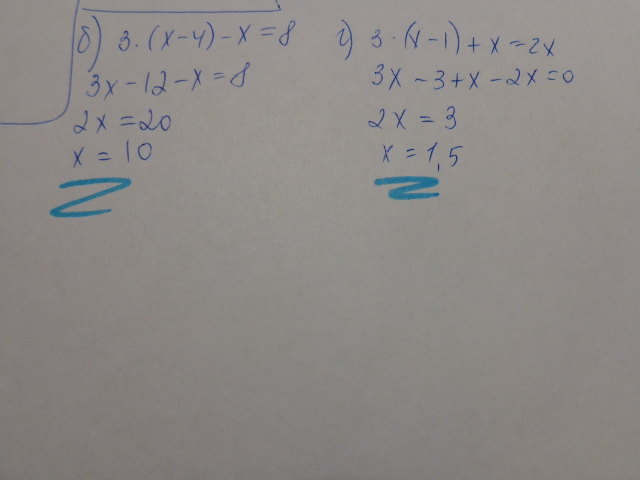 б) 3·(x-4)-x=8
3x-12-x=8
2x=20
x=10
г) 3·(x-1)+x=2x
3x-3+x-2x=0
2x=3
x=1,5